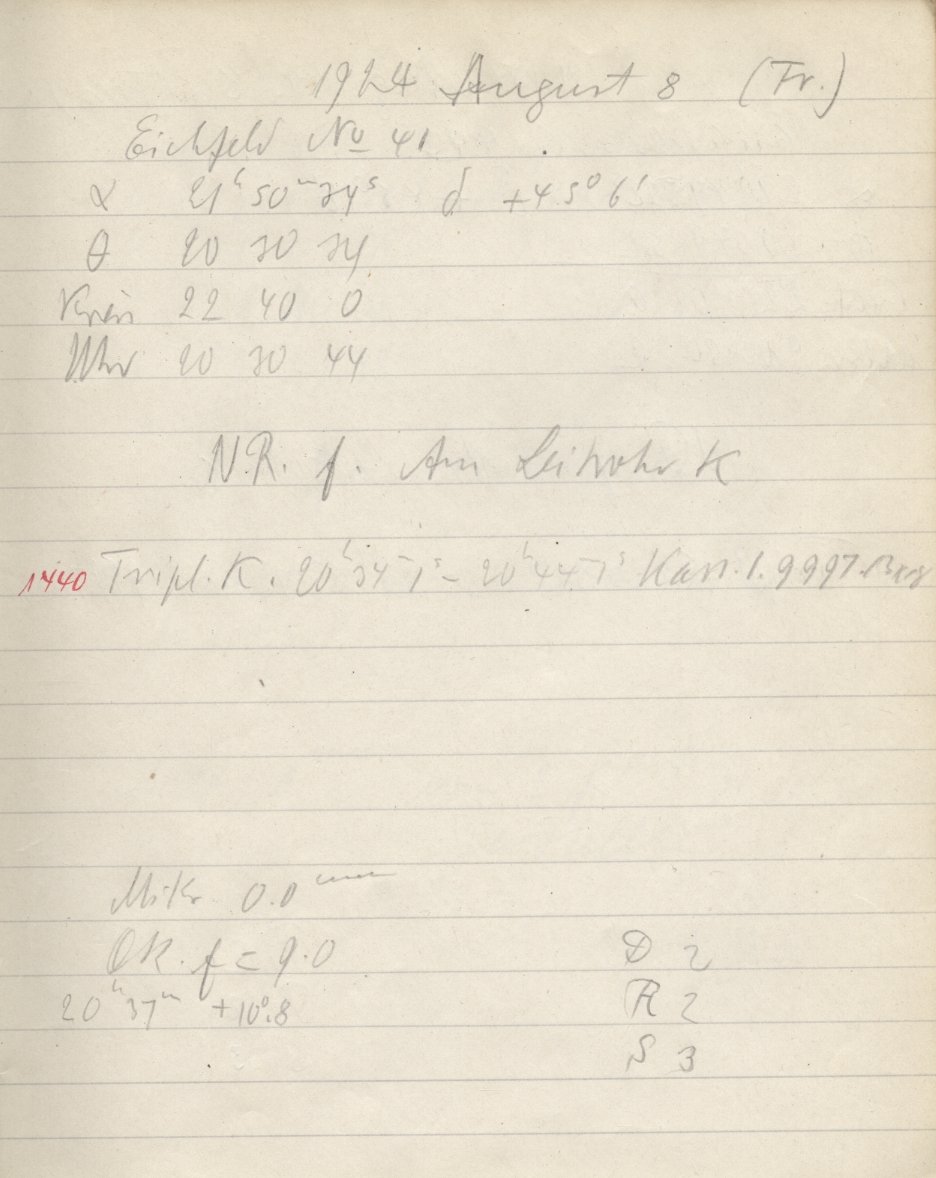 1924 August 8 (Fr.)
Eichfeld No 41
α 21h 50m 34s δ +45° 6'
θ 20 30 34
Kreis 22 40 0
Uhr 20 30 44
N.R. f. Am Leitrohr K
1440 Tripl. K. 20h 34m 1s – 20h 44m 1s Kass. 1. 9997.
Mikr 0.0 mm
OK. f = 9.0 D 2
20h 37m +10°.8 R 2
S 3